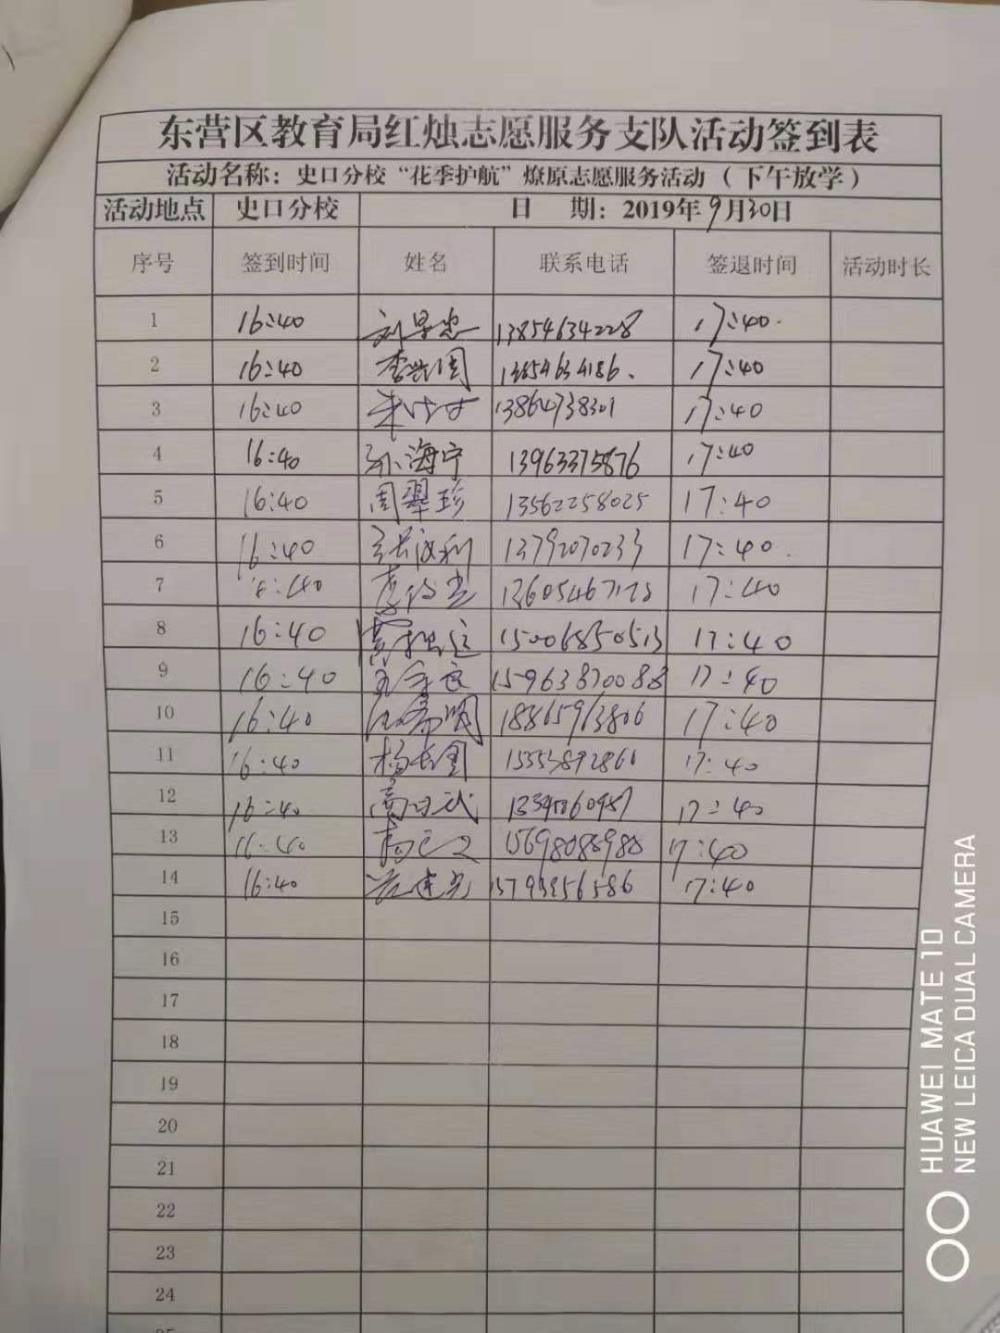 东营区教育局红烛志愿服务支队活动签到表
活动名称：史口分校“花季护航”燎原志愿服务活动（下午放学）
活动地点 史口分校 日 期：2019年9月30日
序号 签到时间 姓名 联系电话 签退时间 活动时长
1 16:40 13854634228 17:40
2 16:40 李兴周 13854634186 17:40
3 16:40 13864738301 17:40
4 16:40 孙海宁 13963375876 17:40
5 16:40 周翠珍 13562258025 17:40
6 16:40 13792070233 17:40
7 16:40 17:40
8 16:40 15006850513 17:40
9 16:40 15963870088 17:40
10 16:40 18865963806 17:40
11 16:40 杨长国 15553892861 17:40
12 16:40 17:40
13 16:40 15698088988 17:40
14 16:40 17:40
15
16
17
18
19
20
21
22
23
24
25
HUAWEI MATE 10
NEW LEICA DUAL CAMERA